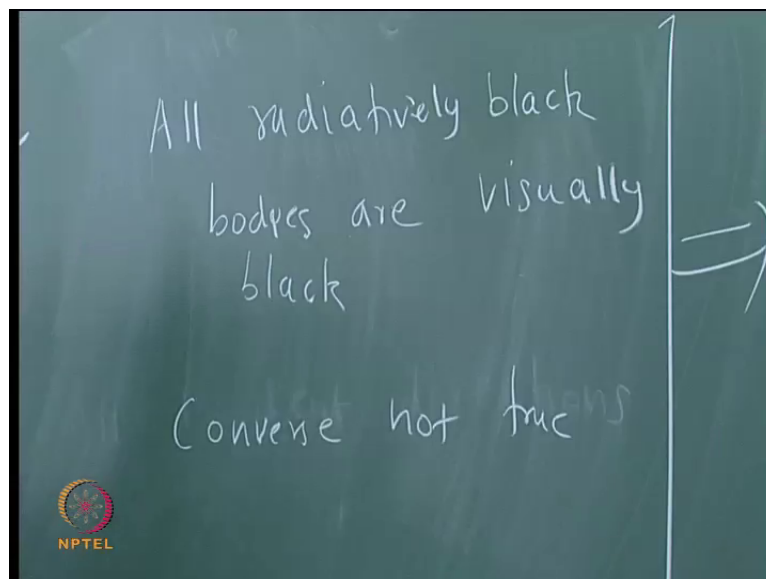 All radiatively black
bodies are visually
black
Converse not true
NPTEL